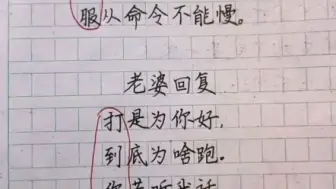 服从命令不能慢。
老婆回复
打是为你好,
到底为啥跑.